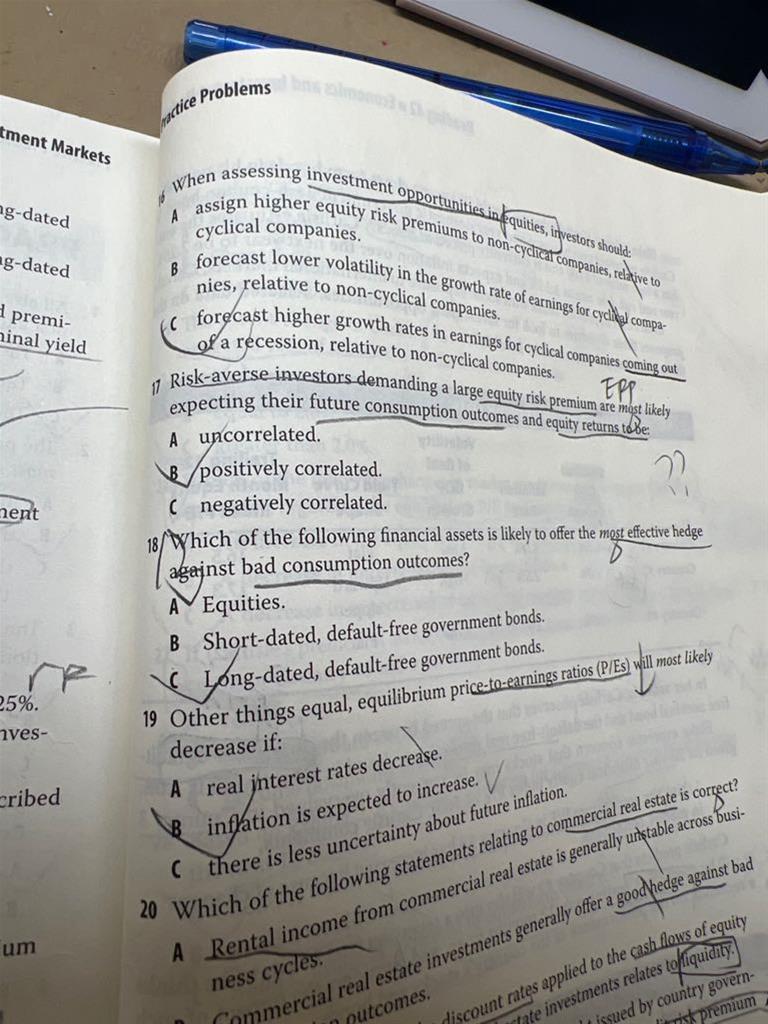 Practice Problems
tment Markets
ng-dated
ng-dated
d premi-
ninal yield
nent
25%.
nves-
cribed
ium
16 When assessing investment opportunities in equities, investors should:
A assign higher equity risk premiums to non-cyclical companies, relative to
cyclical companies.
B forecast lower volatility in the growth rate of earnings for cyclical compa-
nies, relative to non-cyclical companies.
C forecast higher growth rates in earnings for cyclical companies coming out
of a recession, relative to non-cyclical companies.
ERP
17 Risk-averse investors demanding a large equity risk premium are most likely
expecting their future consumption outcomes and equity returns to be:
A uncorrelated.
B positively correlated.
??
C negatively correlated.
18 Which of the following financial assets is likely to offer the most effective hedge
against bad consumption outcomes?
A Equities.
B Short-dated, default-free government bonds.
C Long-dated, default-free government bonds.
19 Other things equal, equilibrium price-to-earnings ratios (P/Es) will most likely
decrease if:
A real interest rates decrease.
B inflation is expected to increase.
C there is less uncertainty about future inflation.
20 Which of the following statements relating to commercial real estate is correct?
A Rental income from commercial real estate is generally unstable across busi-
ness cycles.
Commercial real estate investments generally offer a good hedge against bad
outcomes.
discount rates applied to the cash flows of equity
estate investments relates to liquidity.
issued by country govern-
risk premium